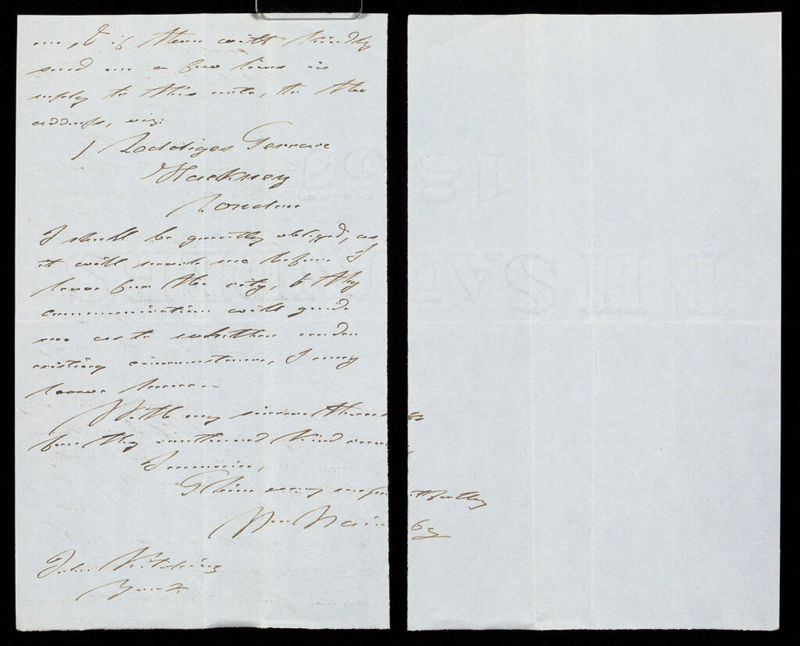 me, & if thou wilt kindly
send me a few lines in
reply to this note, to the
address, viz:
1 Loddiges Terrace
Hackney
London
I shall be greatly obliged, as
it will reach me before I
leave for the city, & thy
communication will guide
me as to whether under
existing circumstances, I may
leave home.
With my sincere thanks
for thy continued kind
I remain,
Thine very respectfully
Wm
John Kitching
York